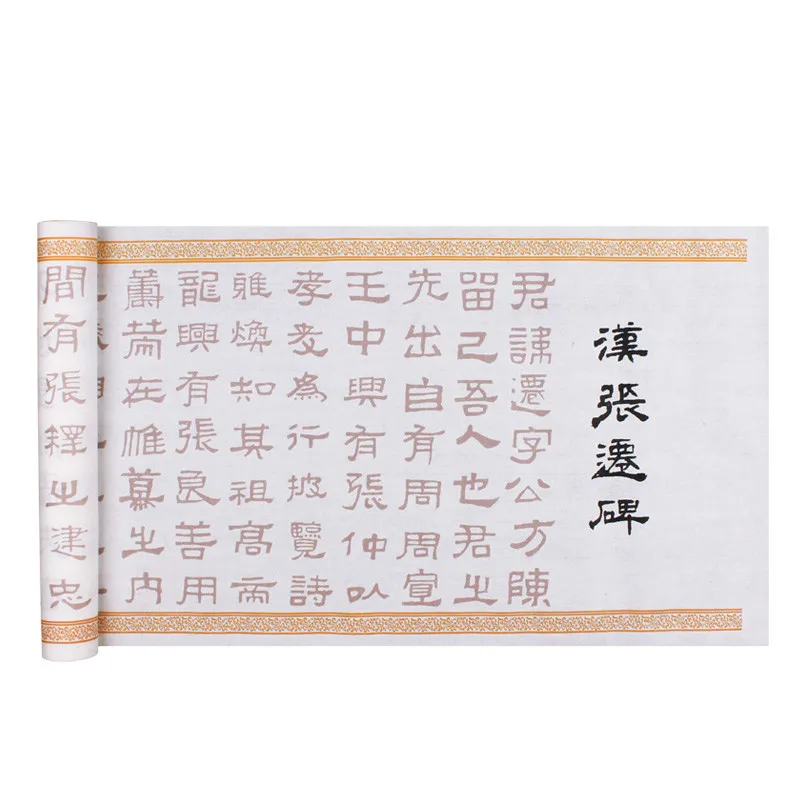 漢張遷碑
君諱遷字公方陳
留己吾人也君之
先出自有周周宣
王中興有張仲以
孝友為行披覽詩
雅煥知其祖高帝
龍興有張良善用
籌策在帷幕之內
間有張釋之建忠